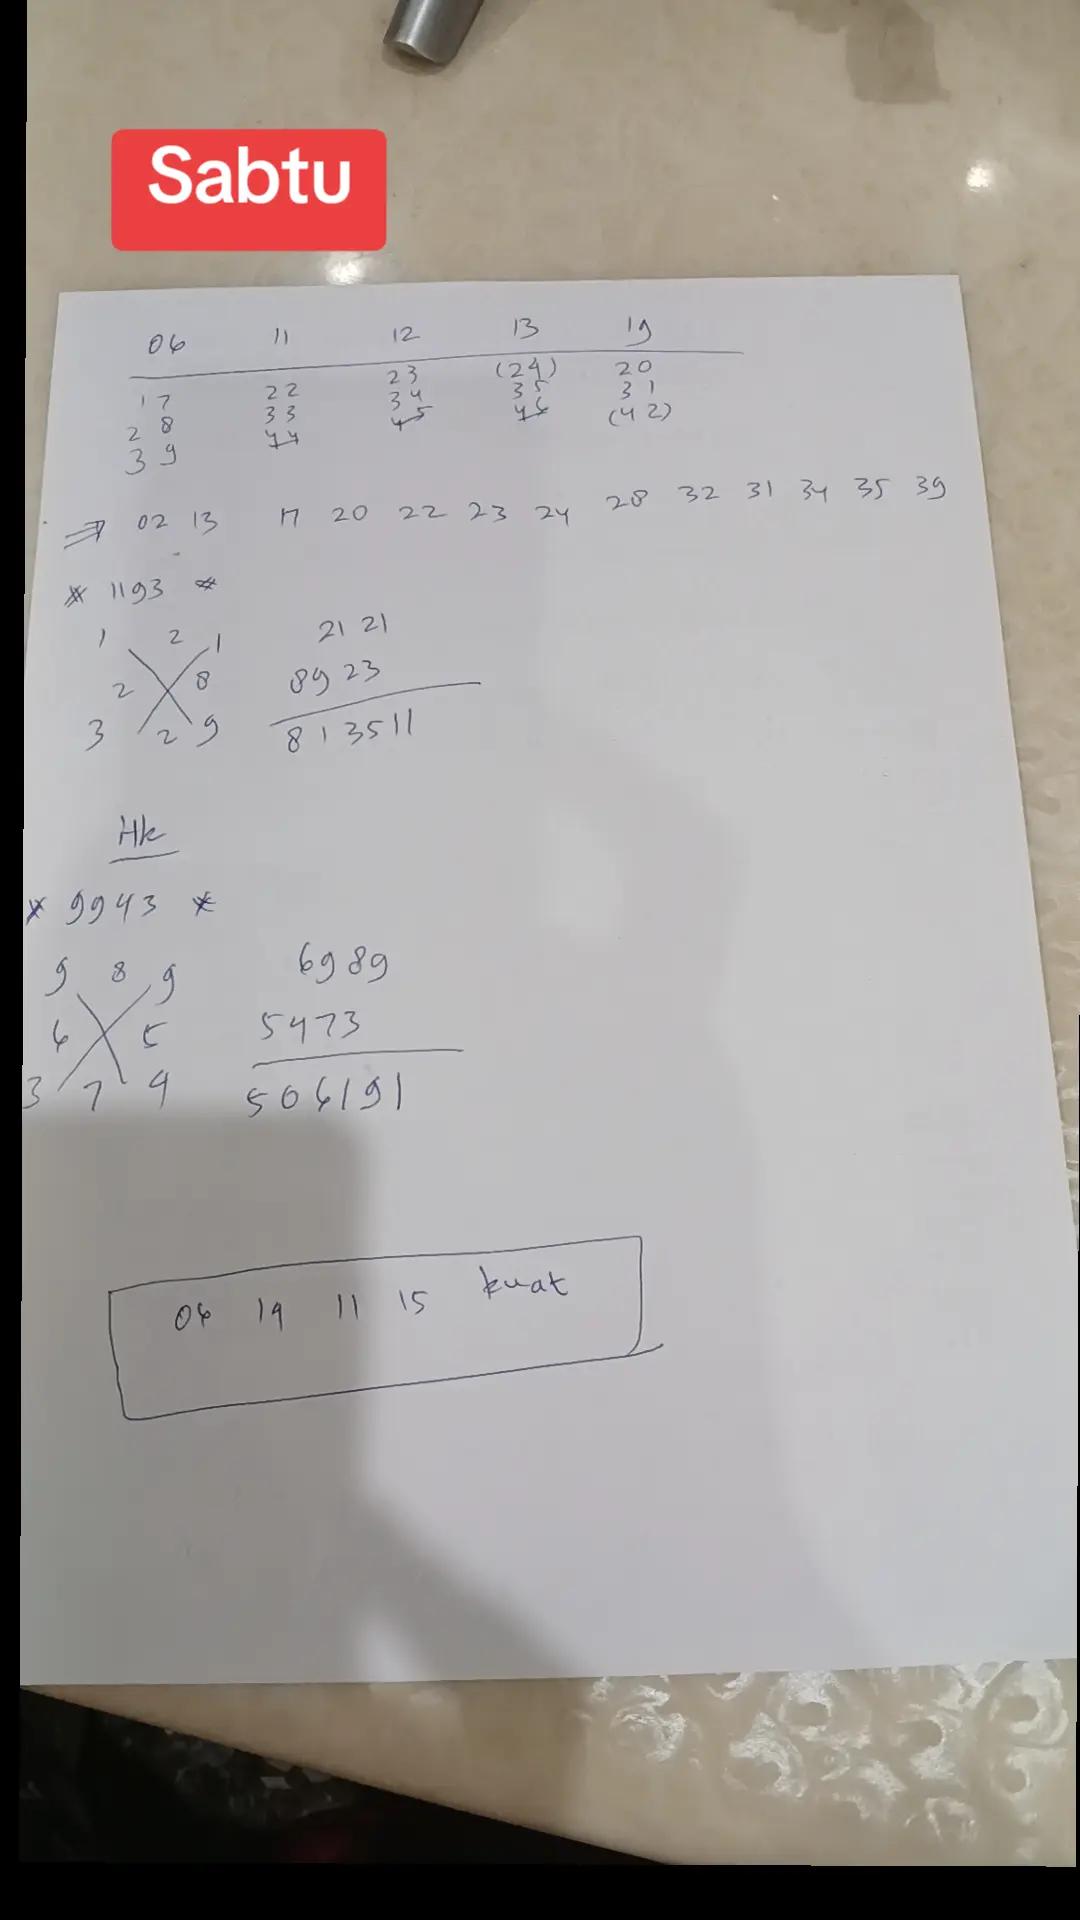 Sabtu
06 11 12 13 19
17 22 23 (24) 20
28 33 34 35 31
39 44 45 46 (42)
⇒ 02 13 17 20 22 23 24 28 32 31 34 35 39
* 1193 *
1 2 1 21 21
2 8 89 23
3 2 9 813511
Hk
* 9943 *
9 8 9 6989
6 5 5473
3 7 4 506191
06 19 11 15 kuat